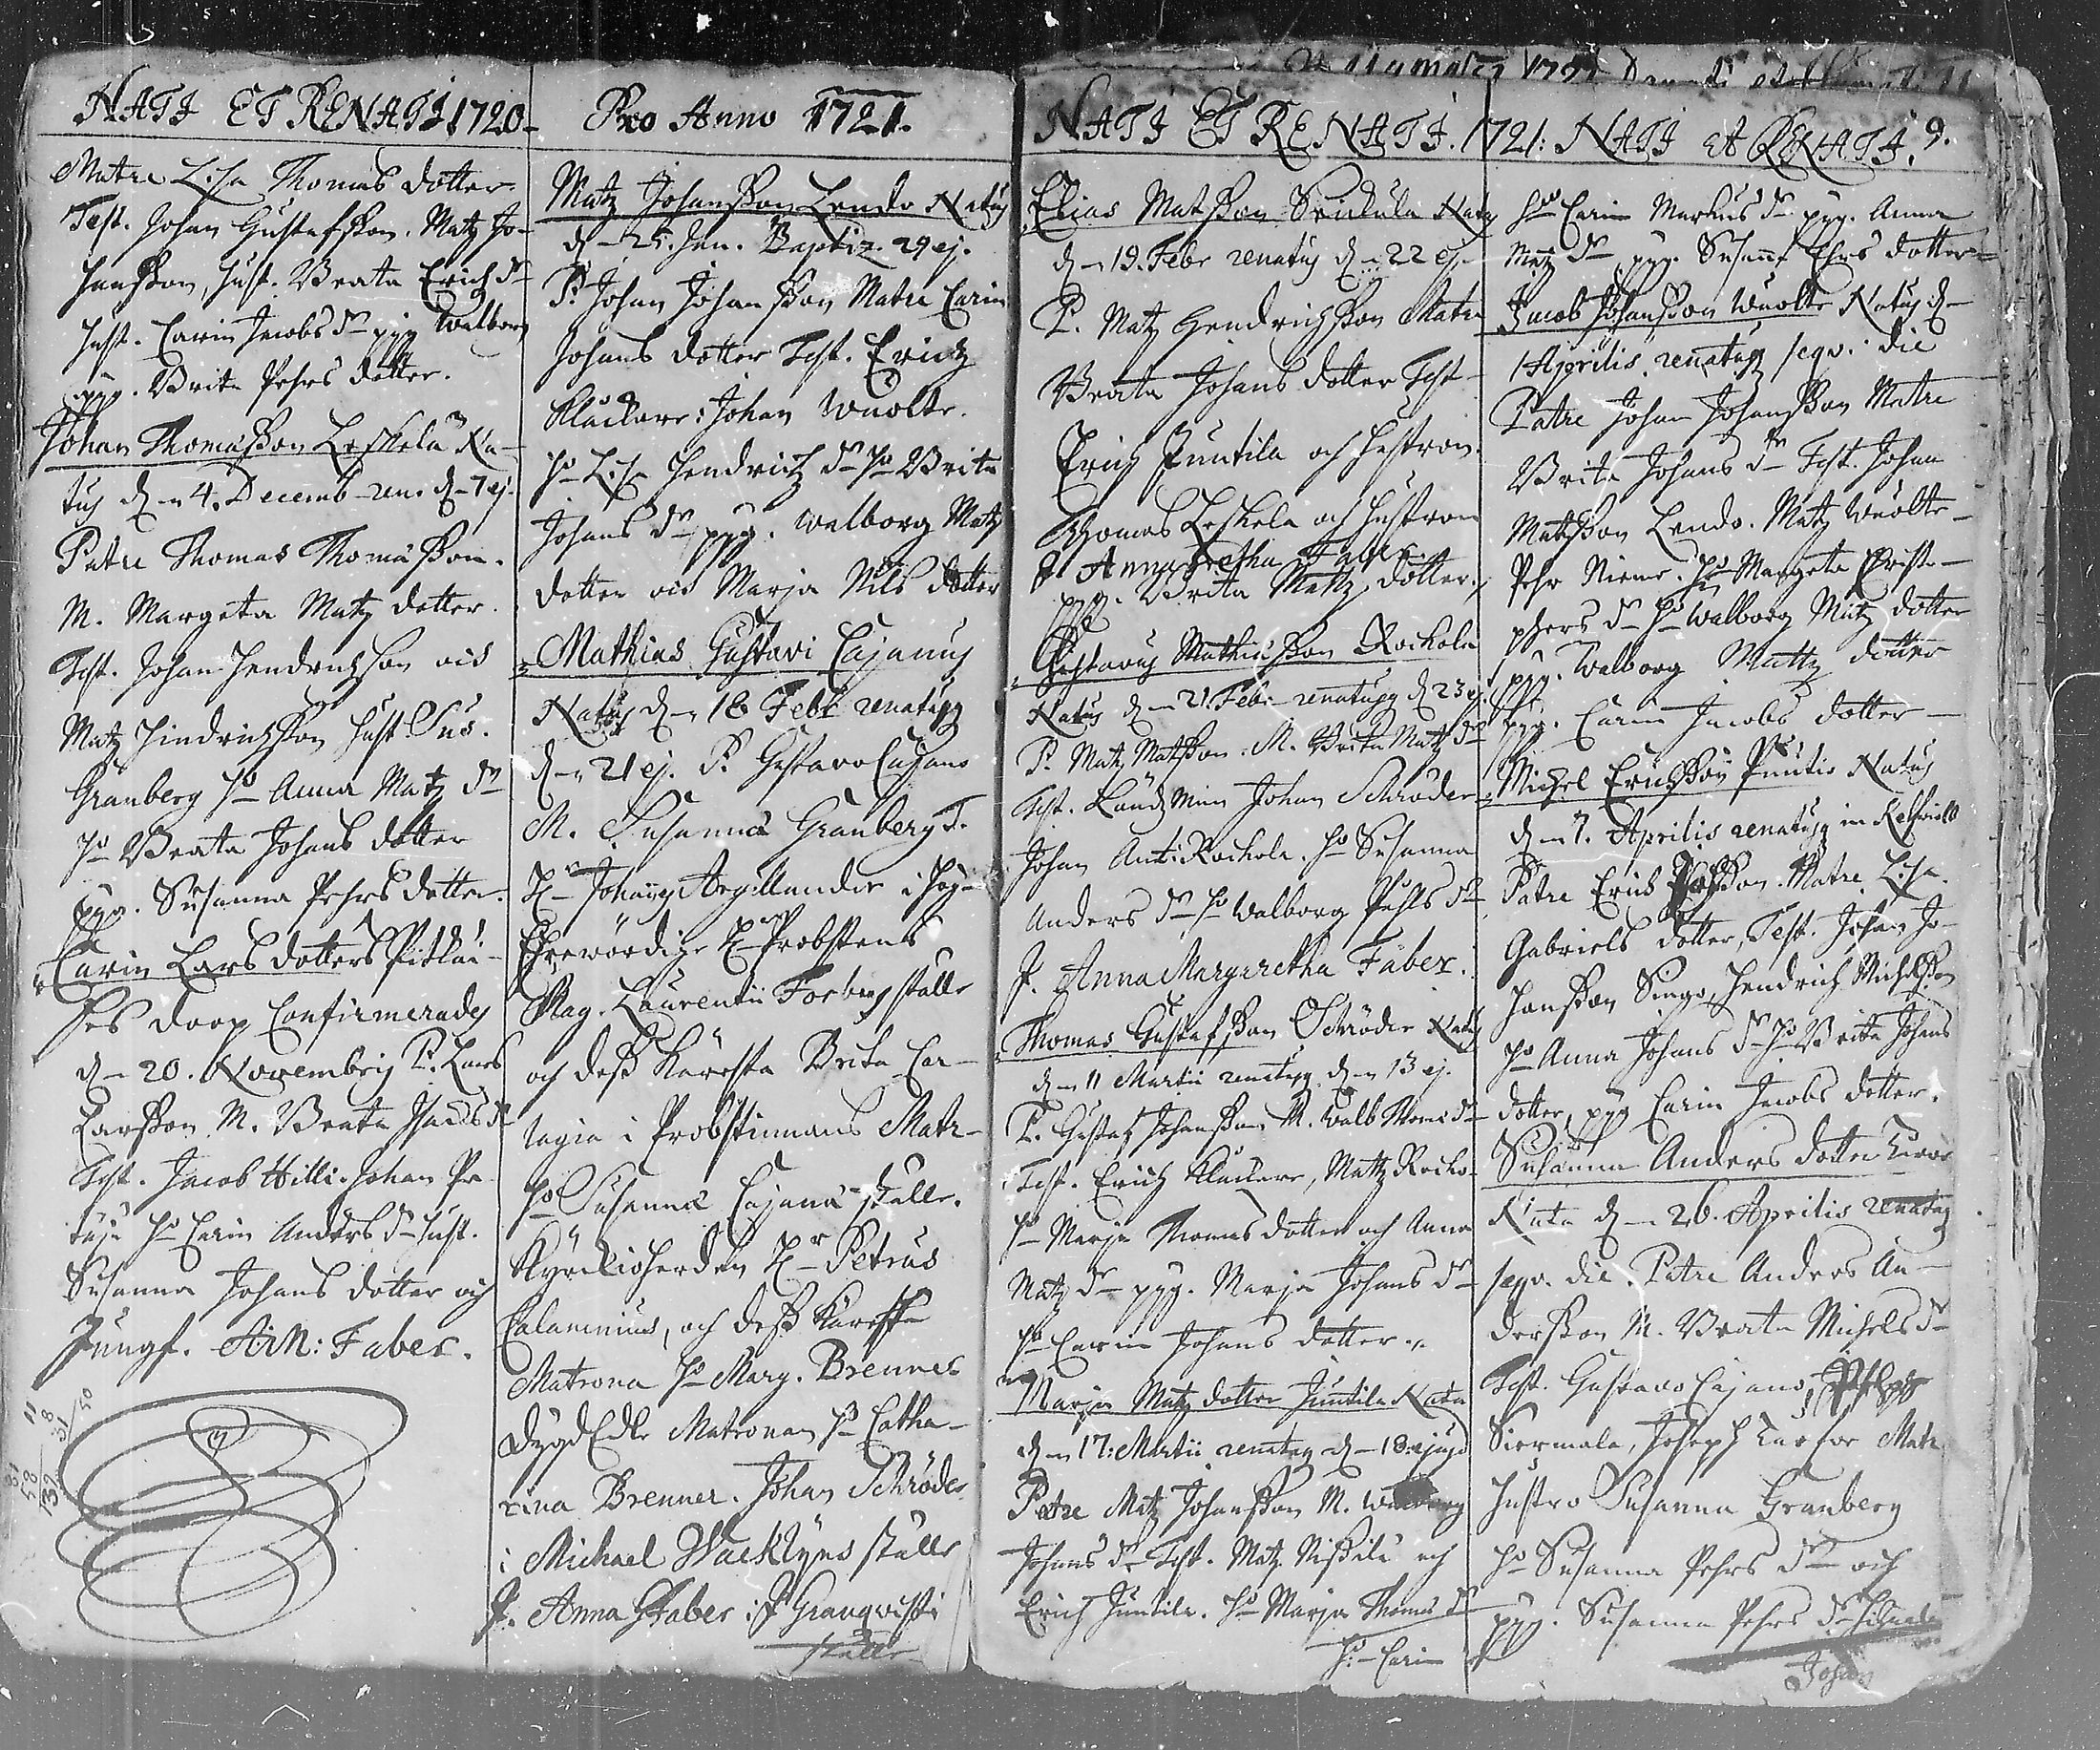 NATI ET RENATI 1720
Matre Lisa Thomas dotter.
Test. Johan Gustafsson. Matz Jo-
hansson, hust. Beata Erich dr
hust. Carin Jacobs dr pig. Walborg
pig. Brita Pehrs dotter.
Johan Thomasson Leskela Na-
tus d. 4. Decemb. ren. d. 7 ej.
Patre Thomas Thomasson.
M. Margeta Matz dotter.
Test. Johan Hendrichsson ois
Matz Hindrichsson hust. Sus.
Granberg H. Anna Matz dr
H. Beata Johans dotter
pig. Susanna Pehrs dotter.
Carin Lars dotters Pitkai-
ses doop Confirmerades
d. 20. Novembris P. Lars
Larsson M. Beata dr
Test. Jacob Hilli. Johan
H. Carin Anders dr hust.
Susanna Johans dotter och
Jungf. A: M: Faber.
Pro Anno 1721.
Matz Johansson Lendo Natus
d. 25. Jan. Baptiz. 29 ej.
P. Johan Johansson Matre Carin
Johans dotter Test. Erich
Kluckare: Johan Wuolte.
H. Lisa Hendrich dr H. Brita
Johans dr pig. Walborg Matz
dotter ois Marja Nils dotter
Mathias Gustavi Cajanus
Natus d. 18 Febr renatus
d. 21 ej. P. Gustavo Cajano
M. Susanna Granberg T.
H. Johannes Argillander i Höga
Ehrewördige H. Probstens
Mag. Laurentii Forbus ställe
och dess Käresta Brita Car-
lagia i Probstinnans Matr-
H. Susanna Cajana ställe.
Kyrckioherden Hr Petrus
Calamnius, och dess Käresta
Matrona H. Marg. Brenner
DygdEdle Matronan H. Catha-
rina Brenner. Johan Schröder
i Michael Wacklyns ställe
J. Anna Faber i J. Granqvists
ställe
NATI ET RENATI. 1721:
Elias Matsson Natus
d. 19. Febr renatus d. 22 ej.
P. Matz Hendrichsson Matre
Beata Johans dotter Test.
Erich Juntila och hustron.
Thomas Leskela och hustron
J. Anna Faber.
pig. Brita Matz dotter.
Gustavus Mathiasson Rochola
Natus d. 21. Febr. renatus d. 23 ej.
P. Matz Matsson. M. Brita Matz dr
Test. Johan Schröder
Johan Anti Rochola. H. Susanna
Anders dr H. Walborg Påhls dr
J. Anna Margaretha Faber.
Thomas Gustafsson Schröder Natus
d. 11 Martii renatus d. 13 ej.
P. Gustaf Johansson M. Walb Thoms dr
Test. Erich Kluckare, Mattz Rocho-
H. Marja Thomas dotter och Anna
Matz dr pig. Marja Johans dr
H. Carin Johans dotter.
Marja Matz dotter Juntila Nata
d. 17. Martii renatus d. 18 ejusd
Patre Matz Johansson M. Walborg
Johans dr Test. Matz och
Erich Juntila. H. Marja Thomas dr
H. Carin
NATI ET RENATI. 9.
H. Carin Markus dr pig. Anna
Matz dr pig. Susanna dotter
Jacob Johansson Wuolte Natus d.
1 Aprilis renatus seqv. die
Patre Johan Johansson Matre
Brita Johans dr Test. Johan
Matsson Lendo. Matz Wuolte
Pehr Nieme. H. Margeta Christo-
phers dr H. Walborg Matz dotter
pig. Walborg Mattz dotter
pig. Carin Jacobs dotter
Michel Erichsson Natus
d. 7. Aprilis renatus in
Patre Erich Matre Lisa
Gabriels dotter, Test. Johan Jo-
hansson Singo, Hendrich Michelsson
H. Anna Johans dr H. Brita Johans
dotter, pig Carin Jacobs dotter.
Susanna Anders dotter
Nata d. 26. Aprilis renatus
seqv. die. Patre Anders An-
dersson M. Beata Michels dr
Test. Gustavo Cajano,
Siermala, Joseph Matr.
Hustro Susanna Granberg
H. Susanna Pehrs dr och
pig. Susanna Pehrs dr
Johan